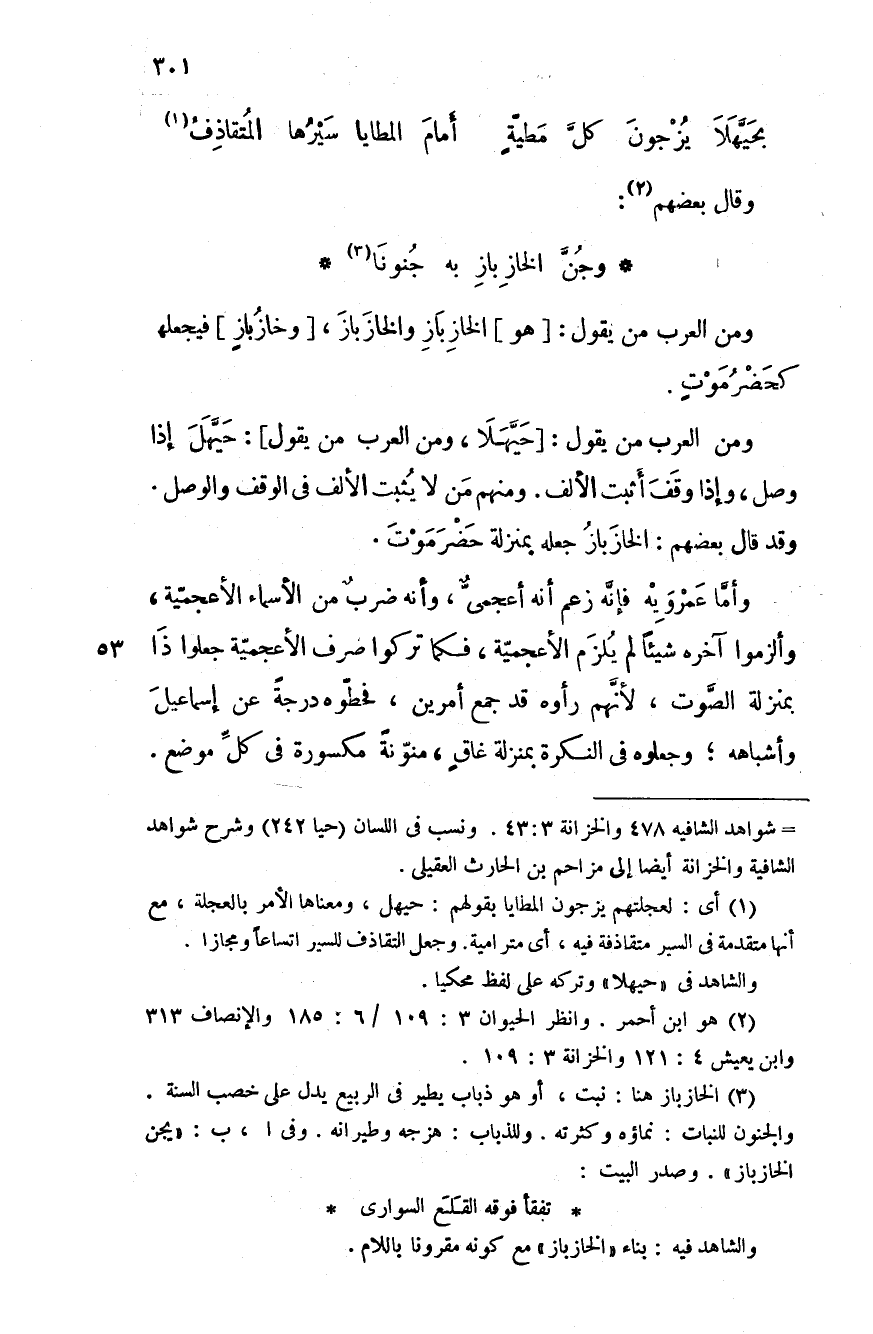 ٣٠١
بحَيَّهَلَا يُزْجونَ كلَّ مَطيّةٍ أَمامَ المطايا سَيْرُها المُتقاذِفُ(١)
وقال بعضهم(٢):
* وجُنَّ الخازِبازِ به جُنونَا(٣) *
ومن العرب من يقول : [ هو ] الخازِبَازِ والخازَبازَ ، [ وخازُبازٍ ] فيجعلها
كحَضْرُمَوْتٍ .
ومن العرب من يقول : [حَيَّهَلَا ، ومن العرب من يقول] : حَيَّهَلَ إذا
وصل ، وإذا وقَفَ أَثبت الألف . ومنهم مَن لا يُثبت الألف فى الوقف والوصل .
وقد قال بعضهم : الخازَبازُ جعله بمنزلة حَضْرَمَوْتَ .
وأمَّا عَمْرَوَيْهِ فإنَّه زعم أنه أعجمىٌّ ، وأنه ضربٌ من الأسماء الأعجميّة ،
وألزموا آخره شيئاً لم يُلزَم الأعجميّة ، فكما تركوا صرف الأعجميّة جعلوا ذَا ٥٣
بمنزلة الصَّوت ، لأنَّهم رأوه قد جمع أمرين ، فحطّوه درجةً عن إسماعيلَ
وأشباهه ؛ وجعلوه فى النكرة بمنزلة غاقٍ ، منوّنةً مكسورة فى كلِّ موضع .
= شواهد الشافيه ٤٧٨ والخزانة ٣ : ٤٣ . ونسب فى اللسان (حيا ٢٤٢) وشرح شواهد
الشافية والخزانة أيضا إلى مزاحم بن الحارث العقيلى .
(١) أى : لعجلتهم يزجون المطايا بقولهم : حيهل ، ومعناها الأمر بالعجلة ، مع
أنها متقدمة فى السير متقاذفة فيه ، أى مترامية. وجعل التقاذف للسير اتساعاً ومجازا .
والشاهد فى «حيهلا» وتركه على لفظ محكيا .
(٢) هو ابن أحمر . وانظر الحيوان ٣ : ١٠٩ / ٦ : ١٨٥ والإنصاف ٣١٣
وابن يعيش ٤ : ١٢١ والخزانة ٣ : ١٠٩ .
(٣) الخازباز هنا : نبت ، أو هو ذباب يطير فى الربيع يدل على خصب السنة .
والجنون للنبات : نماؤه وكثرته . وللذباب : هزجه وطيرانه . وفى ا ، ب : «يجن
الخازباز» . وصدر البيت :
* تفقأ فوقه القلَع السوارى *
والشاهد فيه : بناء «الخازباز» مع كونه مقرونا باللام .